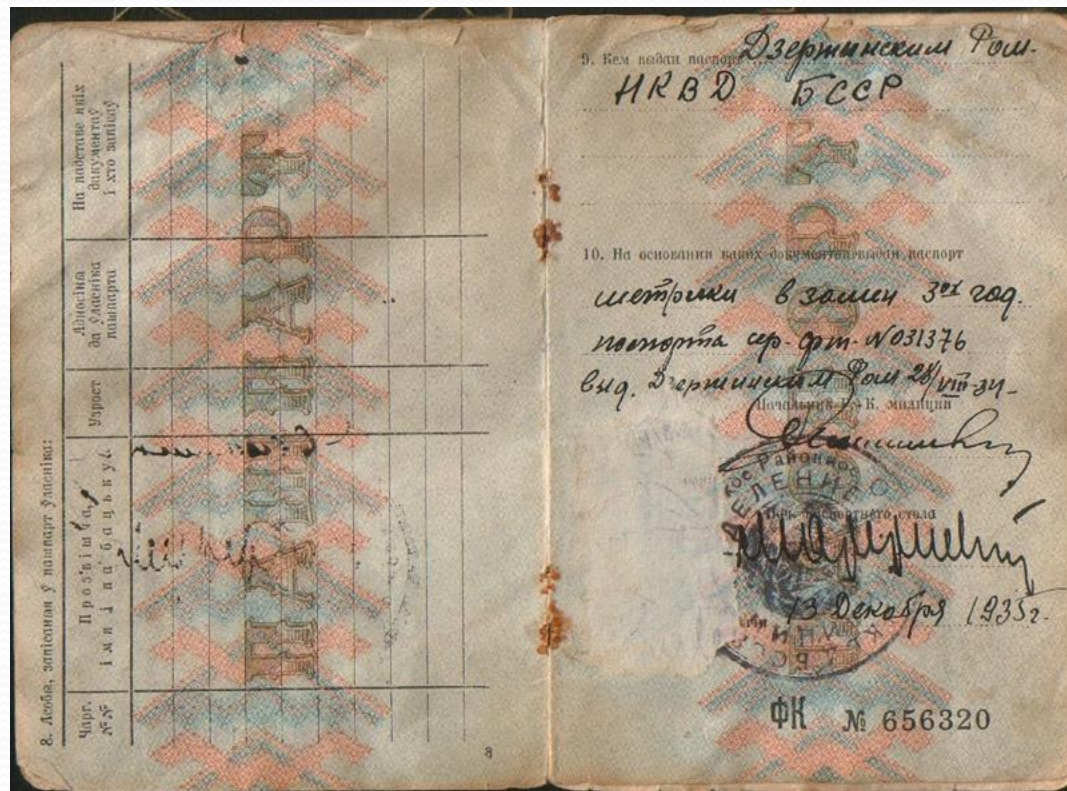 8. Асобы, запісаныя ў пашпарт ўласніка:
Чарг. №№
Прозвішча, імя і па бацьку
Узрост
Адносіна да ўласніка пашпарта
На падставе якіх дакументаў і хто запісаў
ПАШПАРТ
8
9. Кем выдан паспорт Дзержинским Ром.
НКВД БССР
10. На основании каких документов выдан паспорт
метрики в замен 3ох год.
паспорта сер. фт. N 031376
выд. Дзержинским Ром 28/VIII-34-
Начальник Р.-К. милиции
Районное
Нач. паспортного стола
13 Декабря 1935г.
ФК № 656320